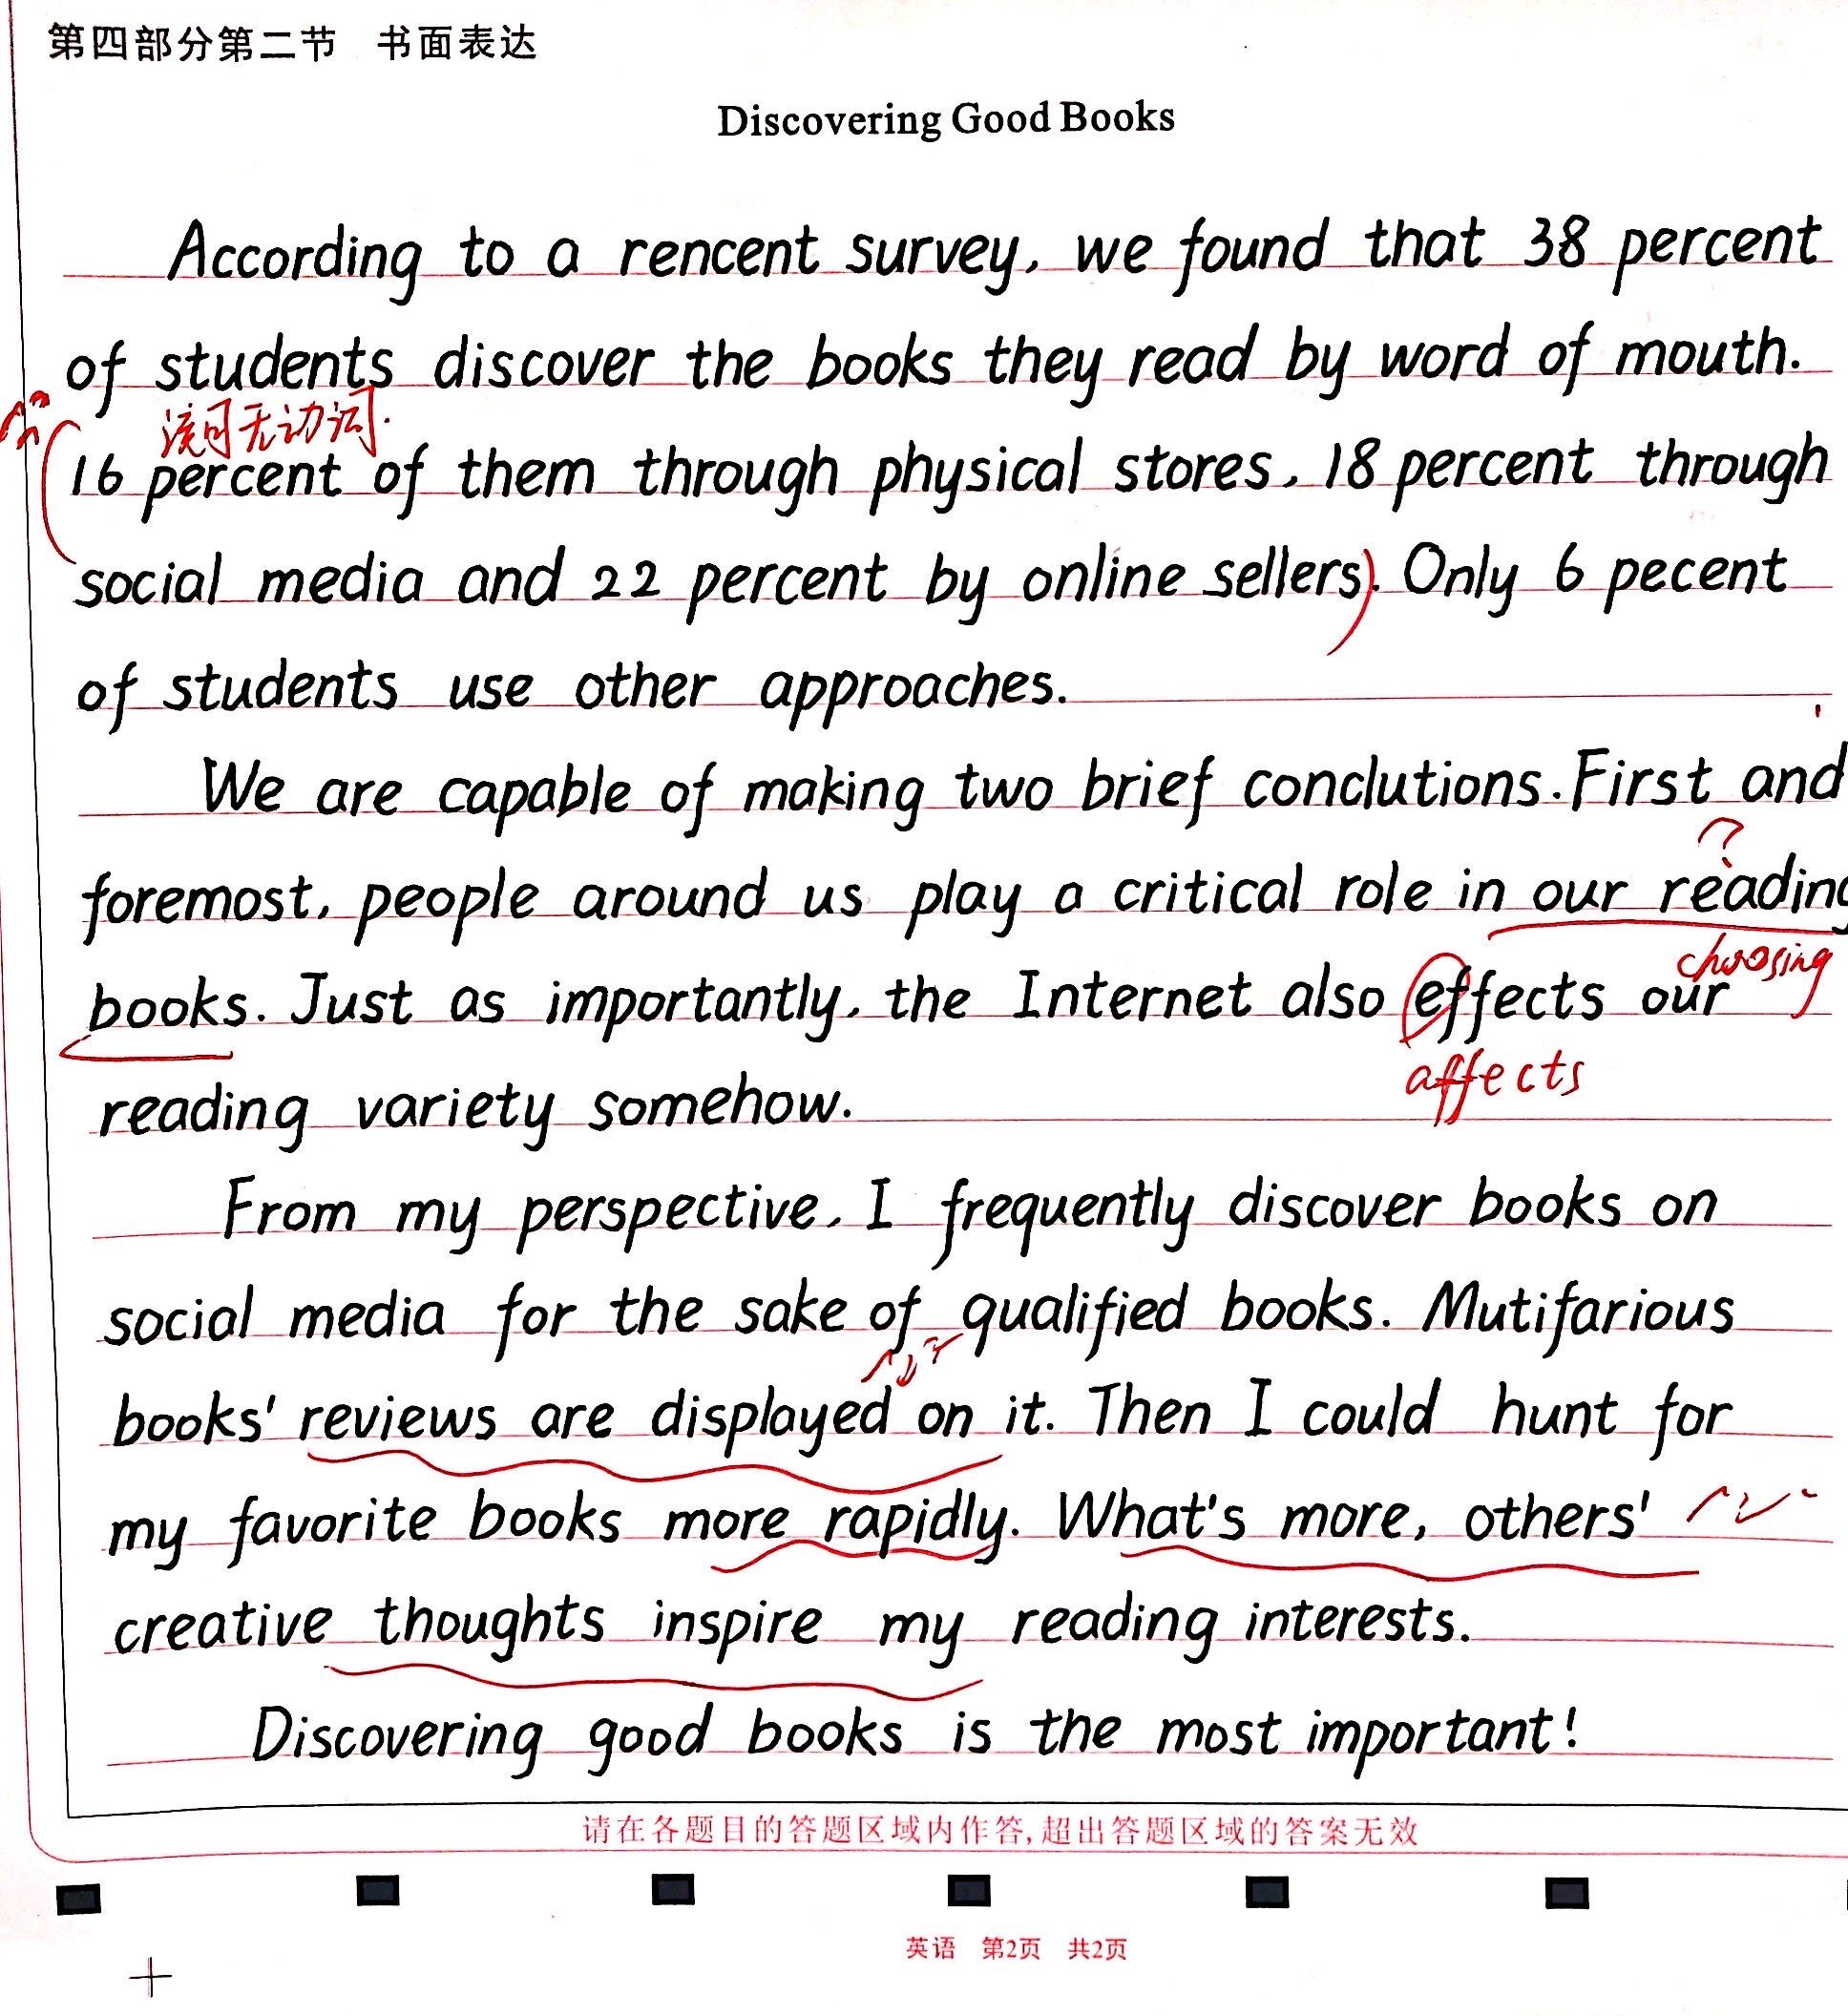 第四部分第二节 书面表达
Discovering Good Books
According to a rencent survey, we found that 38 percent
of students discover the books they read by word of mouth.
该句无动词.
16 percent of them through physical stores, 18 percent through
social media and 22 percent by online sellers). Only 6 pecent
of students use other approaches.
We are capable of making two brief conclutions. First and
?
foremost, people around us play a critical role in our reading
choosing
books. Just as importantly, the Internet also effects our
affects
reading variety somehow.
From my perspective, I frequently discover books on
social media for the sake of qualified books. Mutifarious
books' reviews are displayed on it. Then I could hunt for
my favorite books more rapidly. What's more, others'
creative thoughts inspire my reading interests.
Discovering good books is the most important!
请在各题目的答题区域内作答,超出答题区域的答案无效
英语 第2页 共2页